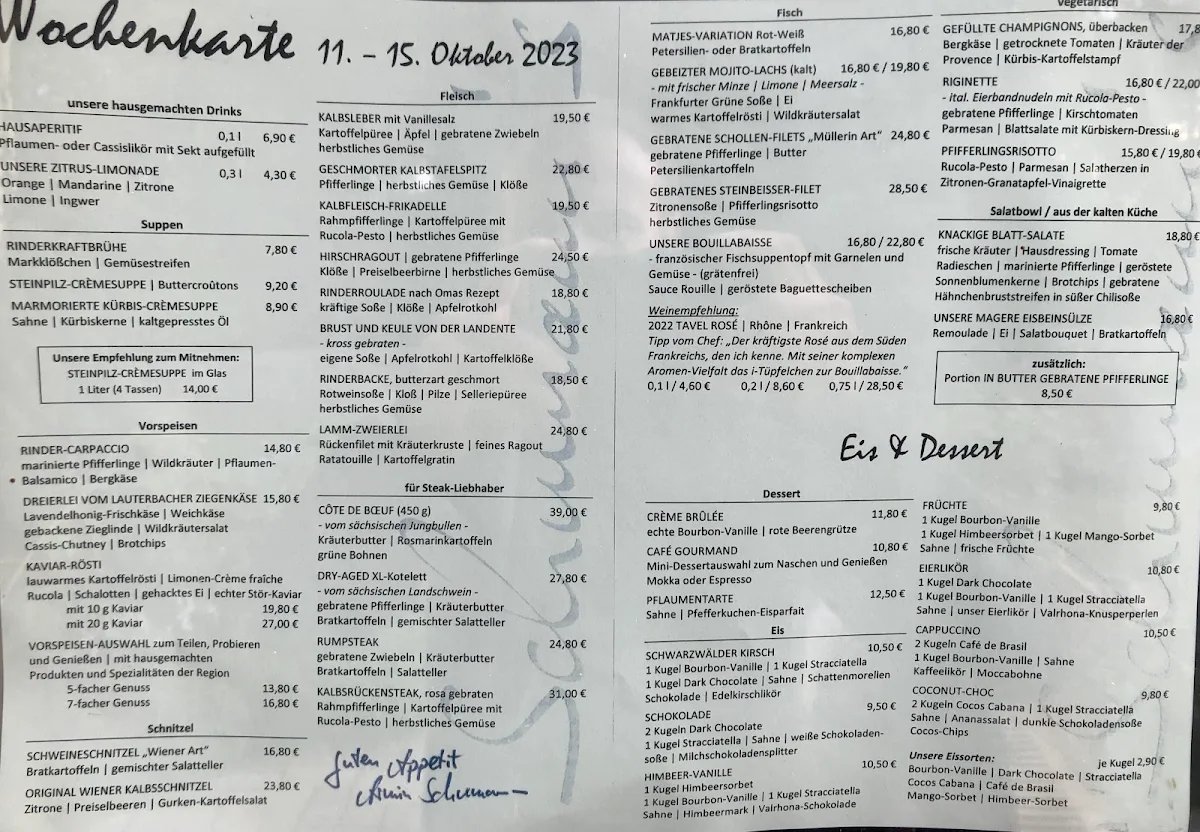 Wochenkarte 11. – 15. Oktober 2023
unsere hausgemachten Drinks
HAUSAPERITIF 0,1 l 6,90 €
Pflaumen- oder Cassislikör mit Sekt aufgefüllt
UNSERE ZITRUS-LIMONADE 0,3 l 4,30 €
Orange | Mandarine | Zitrone
Limone | Ingwer
Suppen
RINDERKRAFTBRÜHE 7,80 €
Markklößchen | Gemüsestreifen
STEINPILZ-CRÈMESUPPE | Buttercroûtons 9,20 €
MARMORIERTE KÜRBIS-CRÈMESUPPE 8,90 €
Sahne | Kürbiskerne | kaltgepresstes Öl
Unsere Empfehlung zum Mitnehmen:
STEINPILZ-CRÈMESUPPE im Glas
1 Liter (4 Tassen) 14,00 €
Vorspeisen
RINDER-CARPACCIO 14,80 €
marinierte Pfifferlinge | Wildkräuter | Pflaumen-
Balsamico | Bergkäse
DREIERLEI VOM LAUTERBACHER ZIEGENKÄSE 15,80 €
Lavendelhonig-Frischkäse | Weichkäse
gebackene Zieglinde | Wildkräutersalat
Cassis-Chutney | Brotchips
KAVIAR-RÖSTI
lauwarmes Kartoffelrösti | Limonen-Crème fraîche
Rucola | Schalotten | gehacktes Ei | echter Stör-Kaviar
mit 10 g Kaviar 19,80 €
mit 20 g Kaviar 27,00 €
VORSPEISEN-AUSWAHL zum Teilen, Probieren
und Genießen | mit hausgemachten
Produkten und Spezialitäten der Region
5-facher Genuss 13,80 €
7-facher Genuss 16,80 €
Schnitzel
SCHWEINESCHNITZEL „Wiener Art“ 16,80 €
Bratkartoffeln | gemischter Salatteller
ORIGINAL WIENER KALBSSCHNITZEL 23,80 €
Zitrone | Preiselbeeren | Gurken-Kartoffelsalat
Fleisch
KALBSLEBER mit Vanillesalz 19,50 €
Kartoffelpüree | Äpfel | gebratene Zwiebeln
herbstliches Gemüse
GESCHMORTER KALBSTAFELSPITZ 22,80 €
Pfifferlinge | herbstliches Gemüse | Klöße
KALBFLEISCH-FRIKADELLE 19,50 €
Rahmpfifferlinge | Kartoffelpüree mit
Rucola-Pesto | herbstliches Gemüse
HIRSCHRAGOUT | gebratene Pfifferlinge 24,50 €
Klöße | Preiselbeerbirne | herbstliches Gemüse
RINDERROULADE nach Omas Rezept 18,80 €
kräftige Soße | Klöße | Apfelrotkohl
BRUST UND KEULE VON DER LANDENTE 21,80 €
- kross gebraten -
eigene Soße | Apfelrotkohl | Kartoffelklöße
RINDERBACKE, butterzart geschmort 18,50 €
Rotweinsoße | Kloß | Pilze | Selleriepüree
herbstliches Gemüse
LAMM-ZWEIERLEI 24,80 €
Rückenfilet mit Kräuterkruste | feines Ragout
Ratatouille | Kartoffelgratin
für Steak-Liebhaber
CÔTE DE BŒUF (450 g) 39,00 €
- vom sächsischen Jungbullen -
Kräuterbutter | Rosmarinkartoffeln
grüne Bohnen
DRY-AGED XL-Kotelett 27,80 €
- vom sächsischen Landschwein -
gebratene Pfifferlinge | Kräuterbutter
Bratkartoffeln | gemischter Salatteller
RUMPSTEAK 24,80 €
gebratene Zwiebeln | Kräuterbutter
Bratkartoffeln | Salatteller
KALBSRÜCKENSTEAK, rosa gebraten 31,00 €
Rahmpfifferlinge | Kartoffelpüree mit
Rucola-Pesto | herbstliches Gemüse
Guten Appetit
Armin Schumann
Fisch
MATJES-VARIATION Rot-Weiß 16,80 €
Petersilien- oder Bratkartoffeln
GEBEIZTER MOJITO-LACHS (kalt) 16,80 € / 19,80 €
- mit frischer Minze | Limone | Meersalz -
Frankfurter Grüne Soße | Ei
warmes Kartoffelrösti | Wildkräutersalat
GEBRATENE SCHOLLEN-FILETS „Müllerin Art“ 24,80 €
gebratene Pfifferlinge | Butter
Petersilienkartoffeln
GEBRATENES STEINBEISSER-FILET 28,50 €
Zitronensoße | Pfifferlingsrisotto
herbstliches Gemüse
UNSERE BOUILLABAISSE 16,80 / 22,80 €
- französischer Fischsuppentopf mit Garnelen und
Gemüse - (grätenfrei)
Sauce Rouille | geröstete Baguettescheiben
Weinempfehlung:
2022 TAVEL ROSÉ | Rhône | Frankreich
Tipp vom Chef: „Der kräftigste Rosé aus dem Süden
Frankreichs, den ich kenne. Mit seiner komplexen
Aromen-Vielfalt das i-Tüpfelchen zur Bouillabaisse.“
0,1 l / 4,60 € 0,2 l / 8,60 € 0,75 l / 28,50 €
Vegetarisch
GEFÜLLTE CHAMPIGNONS, überbacken 17,8
Bergkäse | getrocknete Tomaten | Kräuter der
Provence | Kürbis-Kartoffelstampf
RIGINETTE 16,80 € / 22,00
- ital. Eierbandnudeln mit Rucola-Pesto -
gebratene Pfifferlinge | Kirschtomaten
Parmesan | Blattsalate mit Kürbiskern-Dressing
PFIFFERLINGSRISOTTO 15,80 € / 19,80 €
Rucola-Pesto | Parmesan | Salatherzen in
Zitronen-Granatapfel-Vinaigrette
Salatbowl / aus der kalten Küche
KNACKIGE BLATT-SALATE 18,80 €
frische Kräuter | Hausdressing | Tomate
Radieschen | marinierte Pfifferlinge | geröstete
Sonnenblumenkerne | Brotchips | gebratene
Hähnchenbruststreifen in süßer Chilisoße
UNSERE MAGERE EISBEINSÜLZE 16,80 €
Remoulade | Ei | Salatbouquet | Bratkartoffeln
zusätzlich:
Portion IN BUTTER GEBRATENE PFIFFERLINGE
8,50 €
Eis & Dessert
Dessert
CRÈME BRÛLÉE 11,80 €
echte Bourbon-Vanille | rote Beerengrütze
CAFÉ GOURMAND 10,80 €
Mini-Dessertauswahl zum Naschen und Genießen
Mokka oder Espresso
PFLAUMENTARTE 12,50 €
Sahne | Pfefferkuchen-Eisparfait
Eis
SCHWARZWÄLDER KIRSCH 10,50 €
1 Kugel Bourbon-Vanille | 1 Kugel Stracciatella
1 Kugel Dark Chocolate | Sahne | Schattenmorellen
Schokolade | Edelkirschlikör
SCHOKOLADE 9,50 €
2 Kugeln Dark Chocolate
1 Kugel Stracciatella | Sahne | weiße Schokoladen-
soße | Milchschokoladensplitter
HIMBEER-VANILLE 10,50 €
1 Kugel Himbeersorbet
1 Kugel Bourbon-Vanille | 1 Kugel Stracciatella
Sahne | Himbeermark | Valrhona-Schokolade
FRÜCHTE 9,80 €
1 Kugel Bourbon-Vanille
1 Kugel Himbeersorbet | 1 Kugel Mango-Sorbet
Sahne | frische Früchte
EIERLIKÖR 10,80 €
1 Kugel Dark Chocolate
1 Kugel Bourbon-Vanille | 1 Kugel Stracciatella
Sahne | unser Eierlikör | Valrhona-Knusperperlen
CAPPUCCINO 10,50 €
2 Kugeln Café de Brasil
1 Kugel Bourbon-Vanille | Sahne
Kaffeelikör | Moccabohne
COCONUT-CHOC 9,80 €
2 Kugeln Cocos Cabana | 1 Kugel Stracciatella
Sahne | Ananassalat | dunkle Schokoladensoße
Cocos-Chips
Unsere Eissorten: je Kugel 2,90 €
Bourbon-Vanille | Dark Chocolate | Stracciatella
Cocos Cabana | Café de Brasil
Mango-Sorbet | Himbeer-Sorbet